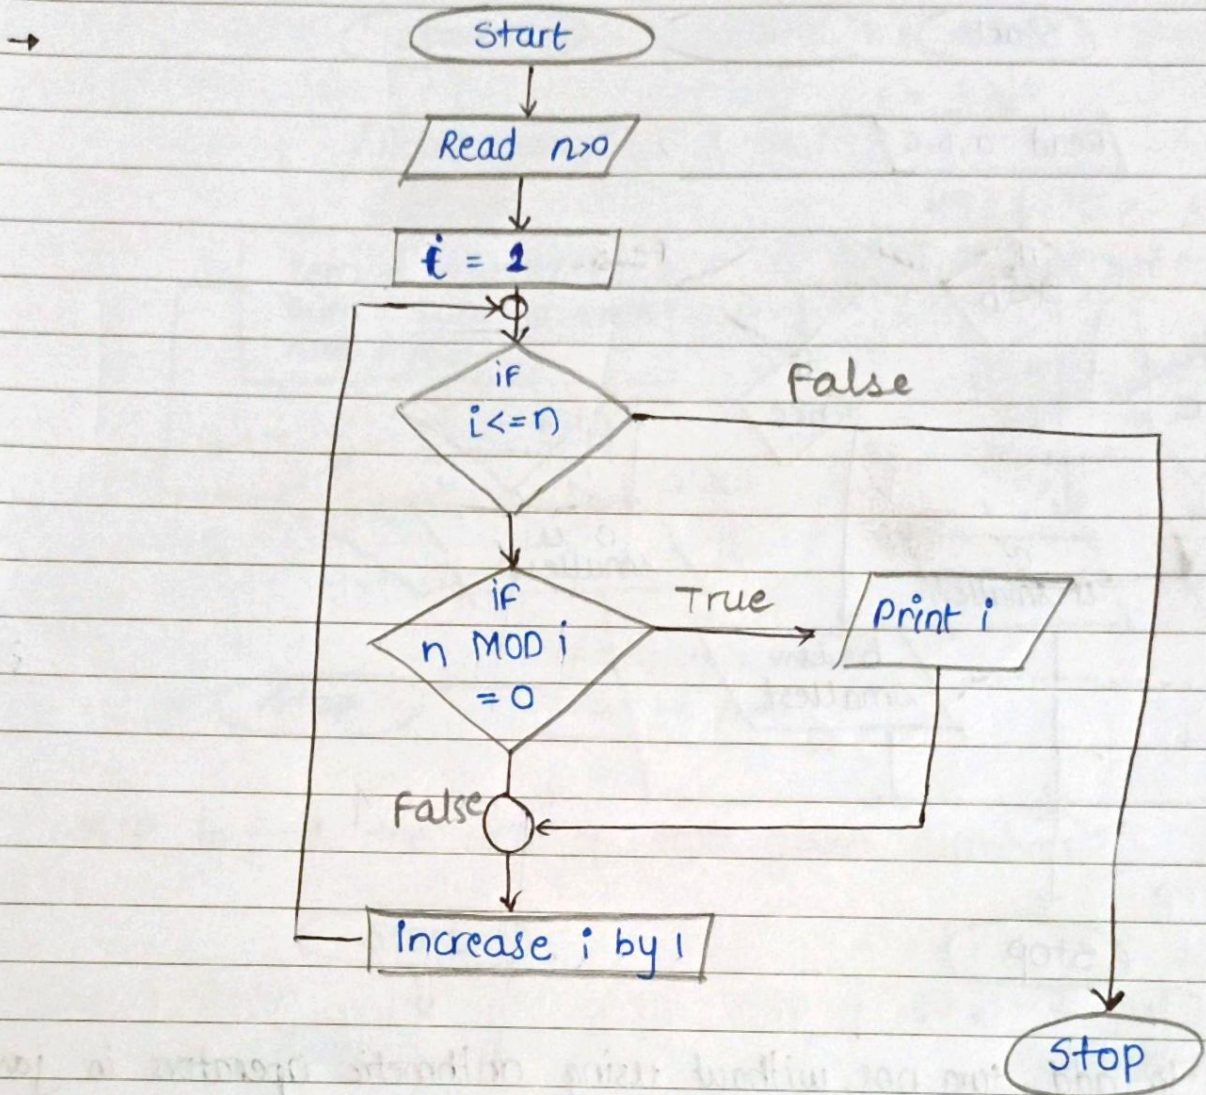 Start
Read n>0
i = 1
if
i<=n
False
if
n MOD i
= 0
True
Print i
False
Increase i by 1
Stop